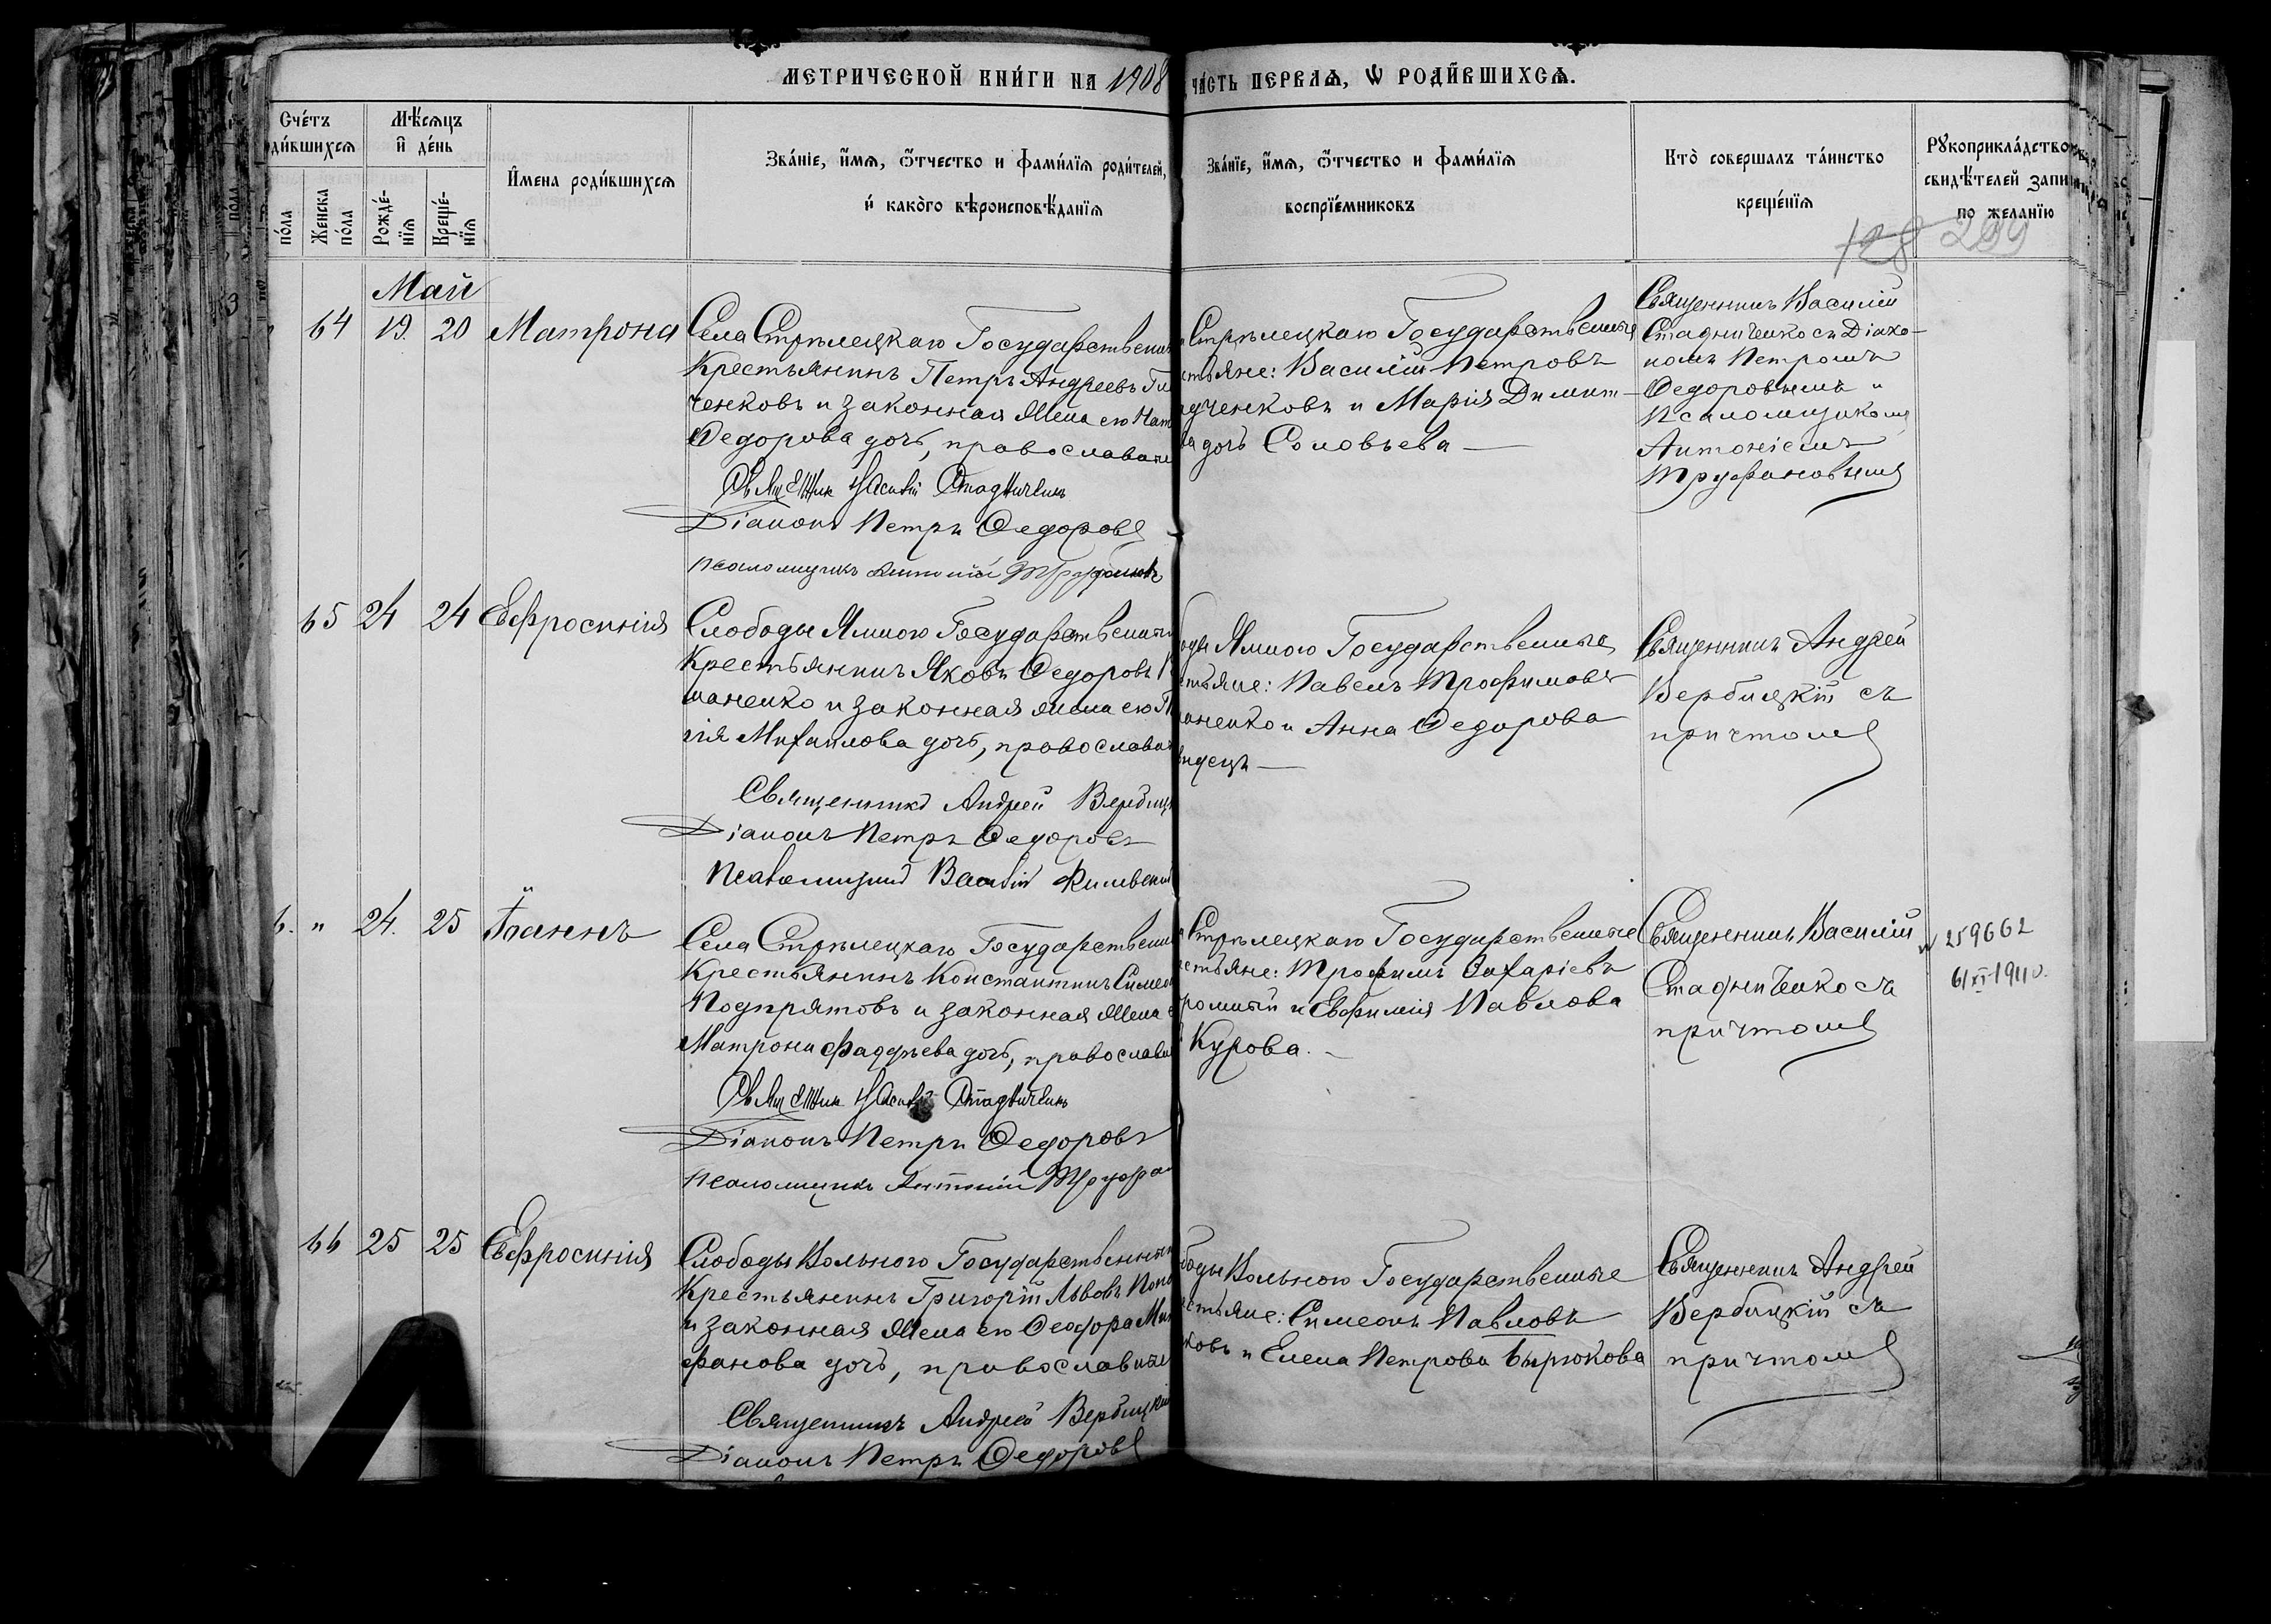 МЕТРИЧЕСКОЙ КНИ́ГИ НА 1908
ЧА́СТЬ ПЕРВАѦ, Ѡ РОДИ́ВШИХСѦ.
Сче́тъ
ди́вшихсѧ
по́ла
Же́нска по́ла
Мѣ́сѧцъ и де́нь
Рожде́нїѧ
Креще́нїѧ
И́мена роди́вшихсѧ
Зва́нїе, и́мѧ, ѻ́тчество и фами́лїѧ роди́телей,
и́ како́го вѣроисповѣ́данїѧ
Зва́нїе, и́мѧ, ѻ́тчество и фами́лїѧ
воспрїе́мниковъ
Кто̀ соверша́лъ та́инство
креще́нїѧ
Рꙋкоприкла́дство
свидѣ́телей запи
по жела́нїю
128 299
Май
64 19. 20 Матрона
Села Стрѣлецкаго Государственн
Крестьянинъ Петръ Андреевъ
ченковъ и законная жена его Нат
Ѳедорова дочь, православн
Священник Василій Стадниченко
Діаконъ Петръ Ѳедоровъ
Псаломщикъ Антоній Труфановъ
Стрѣлецкаго Государственные
стьяне: Василій Петровъ
дченковъ и Марія Димит-
ва дочь Соловьева —
Священникъ Василій
Стадниченко съ Діако-
номъ Петромъ
Ѳедоровымъ и
Псаломщикомъ
Антоніемъ
Труфановымъ
65 24 24 Евфросинія
Слободы Ямного Государственный
Крестьянинъ Яковъ Ѳедоровъ
маненко и законная жена его
гія Михаилова дочь, православн
Священникъ Андрей Вербицк
Діаконъ Петръ Ѳедоровъ
Псаломщикъ Василій
оды Ямного Государственные
стьяне: Павелъ Трофимовъ
маненко и Анна Ѳедорова
— 
Священникъ Андрей
Вербицкій съ
причтомъ
6. " 24. 25 Іоаннъ
Села Стрѣлецкаго Государственн
Крестьянинъ Константинъ Симео
Подпрятовъ и законная жена
Матрона Фаддѣева дочь, православн
Священник Василій Стадниченко
Діаконъ Петръ Ѳедоровъ
Псаломщикъ Антоній Труфа
Стрѣлецкаго Государственные
стьяне: Трофимъ Захаріевъ
и Евфимія Павлова
Курова. —
Священникъ Василій
Стадниченко съ
причтомъ
259662
6/XI-1940.
66 25 25 Евфросинія
Слободы Вольного Государственный
Крестьянинъ Григорій Львовъ Попо
и законная жена его Ѳеодора Ми
фанова дочь, православные
Священникъ Андрей Вербицкій
Діаконъ Петръ Ѳедоровъ
боды Вольного Государственные
стьяне: Симеонъ Павловъ
ковъ и Елена Петрова Бирюкова
Священникъ Андрей
Вербицкій съ
причтомъ